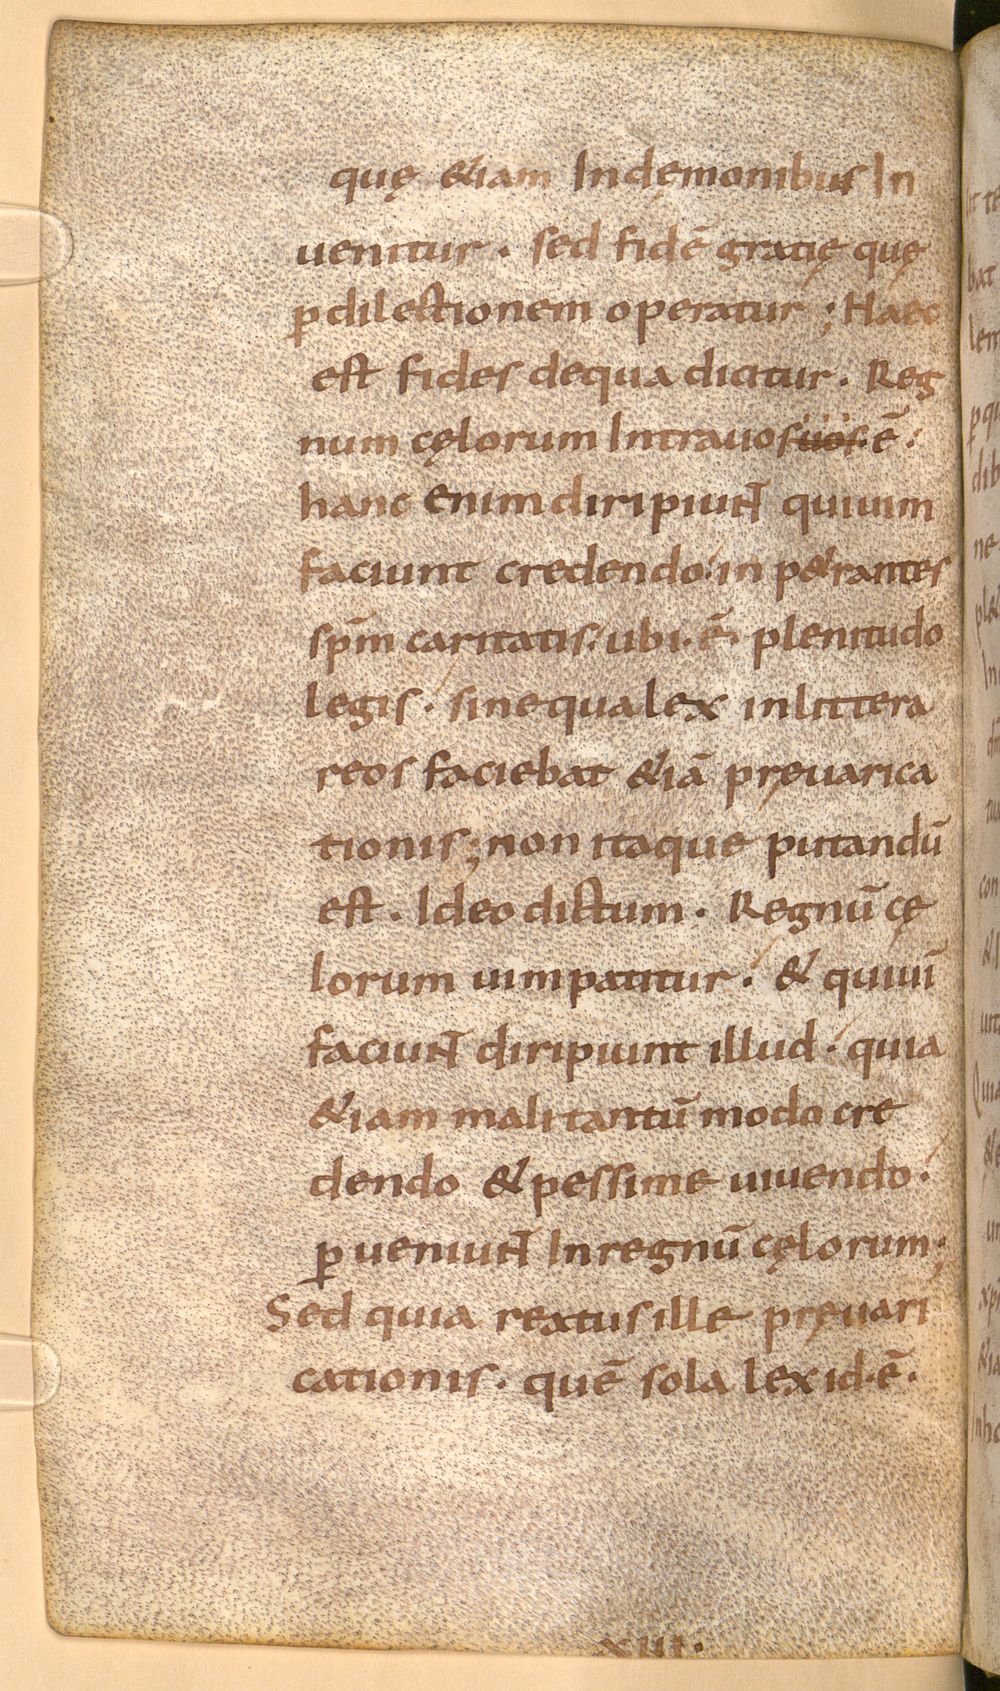 quę &iam Indęmonibus In
uenitur . sed fidē gratię quę
ꝑdilectionem operatur ; Haec
est fides dequa dicitur . Reg
num cęlorum Intrauos uos ē .
hanc enim diripiunt quiuim
faciunt credendo . inp&rantes
sp̄m caritatis . ubi . ē . plenitudo
legis . sinequa lex inlittera
reos faciebat &iā pręuarica
tionis ; non itaque putandū
est . Ideo dictum . Regnū cę
lorum uim patitur . & quiuī
faciunt diripiunt illud . quia
&iam mali tantū modo cre
dendo & pessime uiuendo .
ꝑueniunt Inregnū cęlorum ;
Sed quia reatus ille pręuari
cationis . quē sola lex id . ē .
XIII .